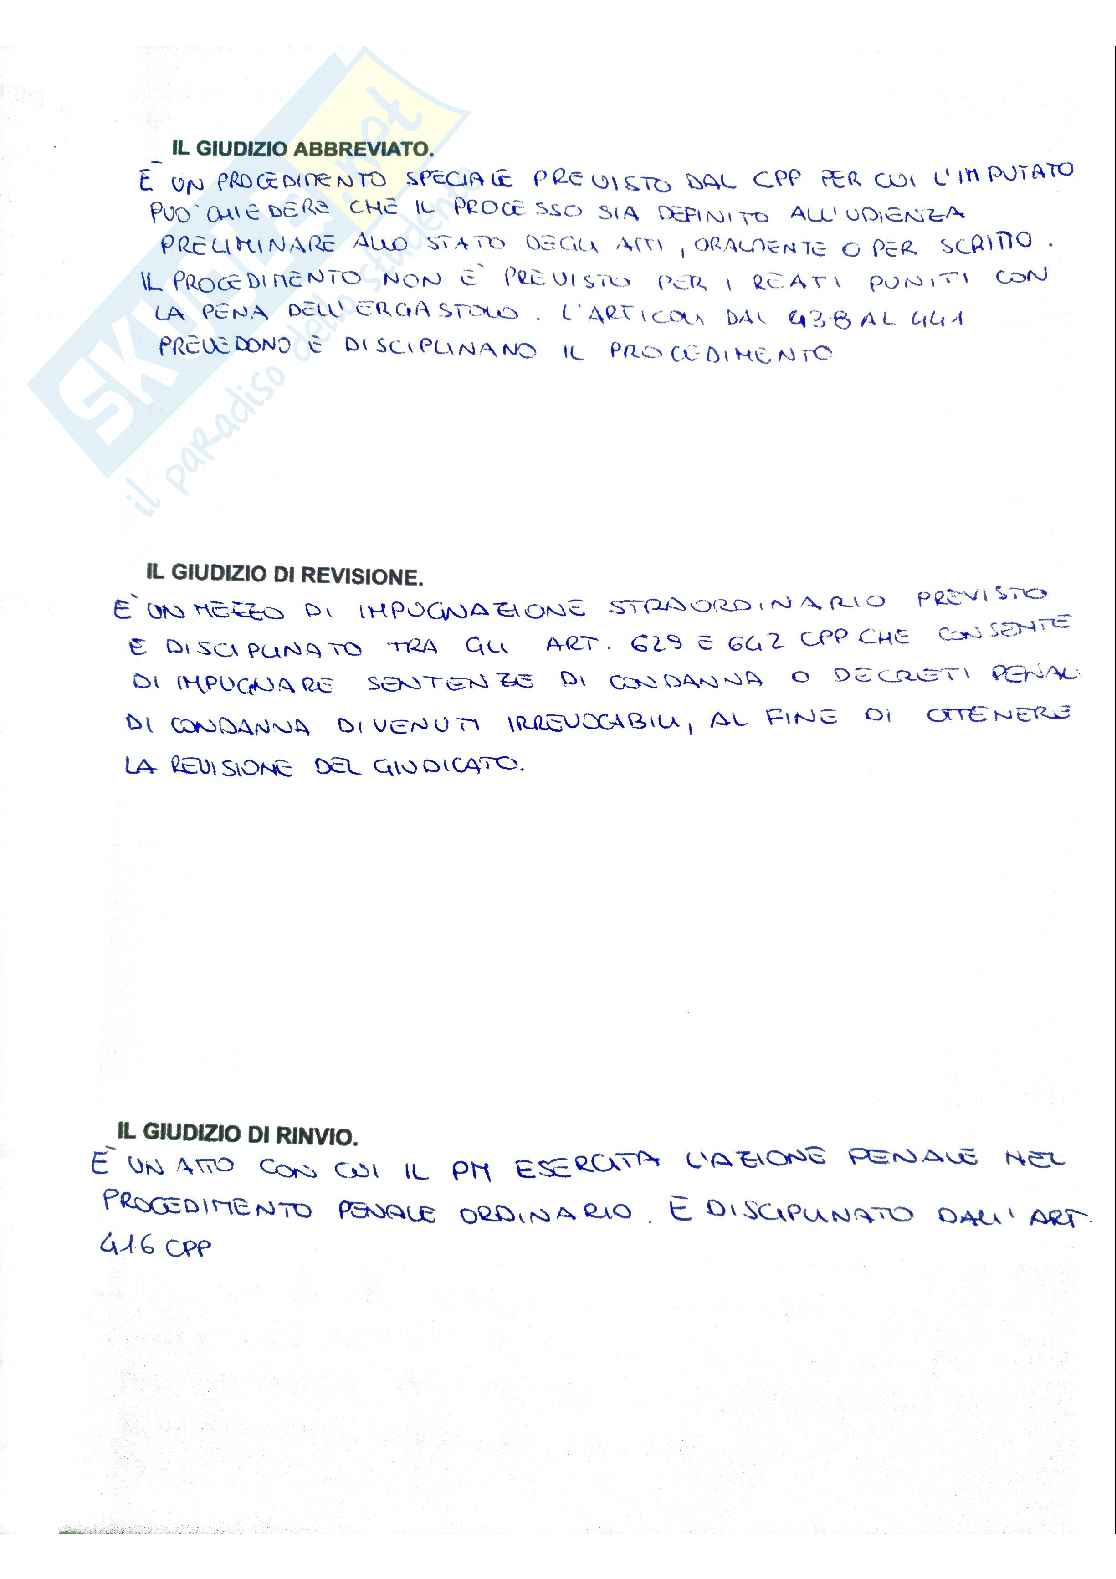 SKUOLA.net
il paradiso dello studente
IL GIUDIZIO ABBREVIATO.
È UN PROCEDIMENTO SPECIALE PREVISTO DAL CPP PER CUI L'IMPUTATO
PUO' CHIEDERE CHE IL PROCESSO SIA DEFINITO ALL'UDIENZA
PRELIMINARE ALLO STATO DEGLI ATTI, ORALMENTE O PER SCRITTO.
IL PROCEDIMENTO NON E' PREVISTO PER I REATI PUNITI CON
LA PENA DELL'ERGASTOLO. L'ARTICOLI DAL 438 AL 441
PREVEDONO E DISCIPLINANO IL PROCEDIMENTO
IL GIUDIZIO DI REVISIONE.
E' UN MEZZO DI IMPUGNAZIONE STRAORDINARIO PREVISTO
E DISCIPLINATO TRA GLI ART. 629 E 642 CPP CHE CONSENTE
DI IMPUGNARE SENTENZE DI CONDANNA O DECRETI PENALI
DI CONDANNA DIVENUTI IRREVOCABILI, AL FINE DI OTTENERE
LA REVISIONE DEL GIUDICATO.
IL GIUDIZIO DI RINVIO.
E' UN ATTO CON CUI IL PM ESERCITA L'AZIONE PENALE NEL
PROCEDIMENTO PENALE ORDINARIO. E DISCIPLINATO DALL'ART.
416 CPP